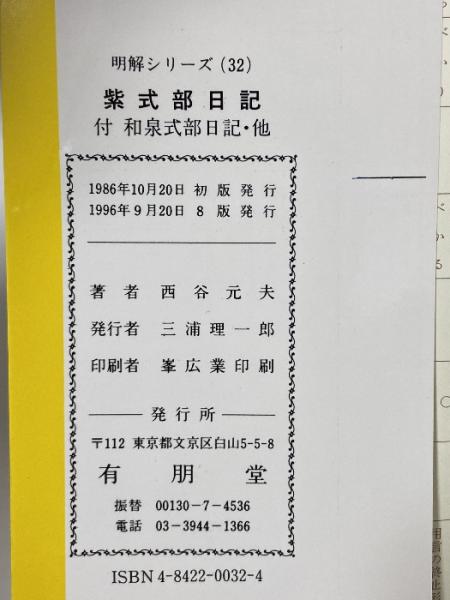 明解シリーズ(32)
紫式部日記
付 和泉式部日記・他
1986年10月20日 初版発行
1996年9月20日 8版発行
著者 西谷元夫
発行者 三浦理一郎
印刷者 峯広業印刷
発行所
〒112 東京都文京区白山5-5-8
有朋堂
振替 00130-7-4536
電話 03-3944-1366
ISBN4-8422-0032-4
べかる
用言の終止形